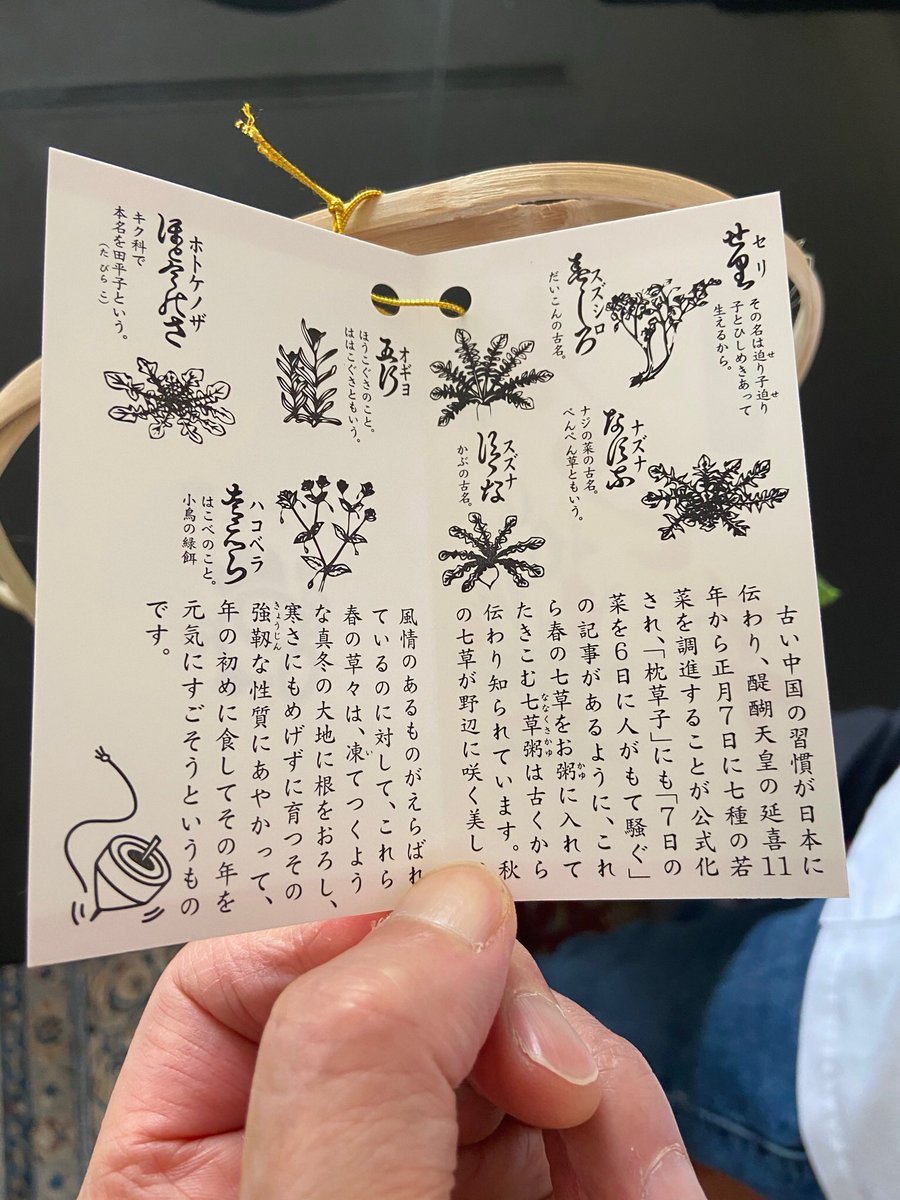 セリ
せ里
その名は迫り子迫り
せ せ
子とひしめきあって
生えるから。
ナズナ
ナジの菜の古名。
ぺんぺん草ともいう。
スズシロ
だいこんの古名。
スズナ
かぶの古名。
オギヨ
五行
ほうこぐさのこと。
ははこぐさともいう。
ホトケノザ
キク科で
本名を田平子という。
(た びら こ)
ハコベラ
はこべのこと。
小鳥の緑餌
古い中国の習慣が日本に
伝わり、醍醐天皇の延喜11
年から正月7日に七種の若
菜を調進することが公式化
され、「枕草子」にも「7日の
菜を6日に人がもて騒ぐ」
の記事があるように、これ
ら春の七草をお粥に入れて
かゆ
たきこむ七草粥は古くから
ななくさかゆ
伝わり知られています。秋
の七草が野辺に咲く美し
風情のあるものがえらばれ
ているのに対して、これら
春の草々は、凍てつくよう
い
な真冬の大地に根をおろし、
寒さにもめげずに育つその
強靱な性質にあやかって、
きょうじん
年の初めに食してその年を
元気にすごそうというもの
です。